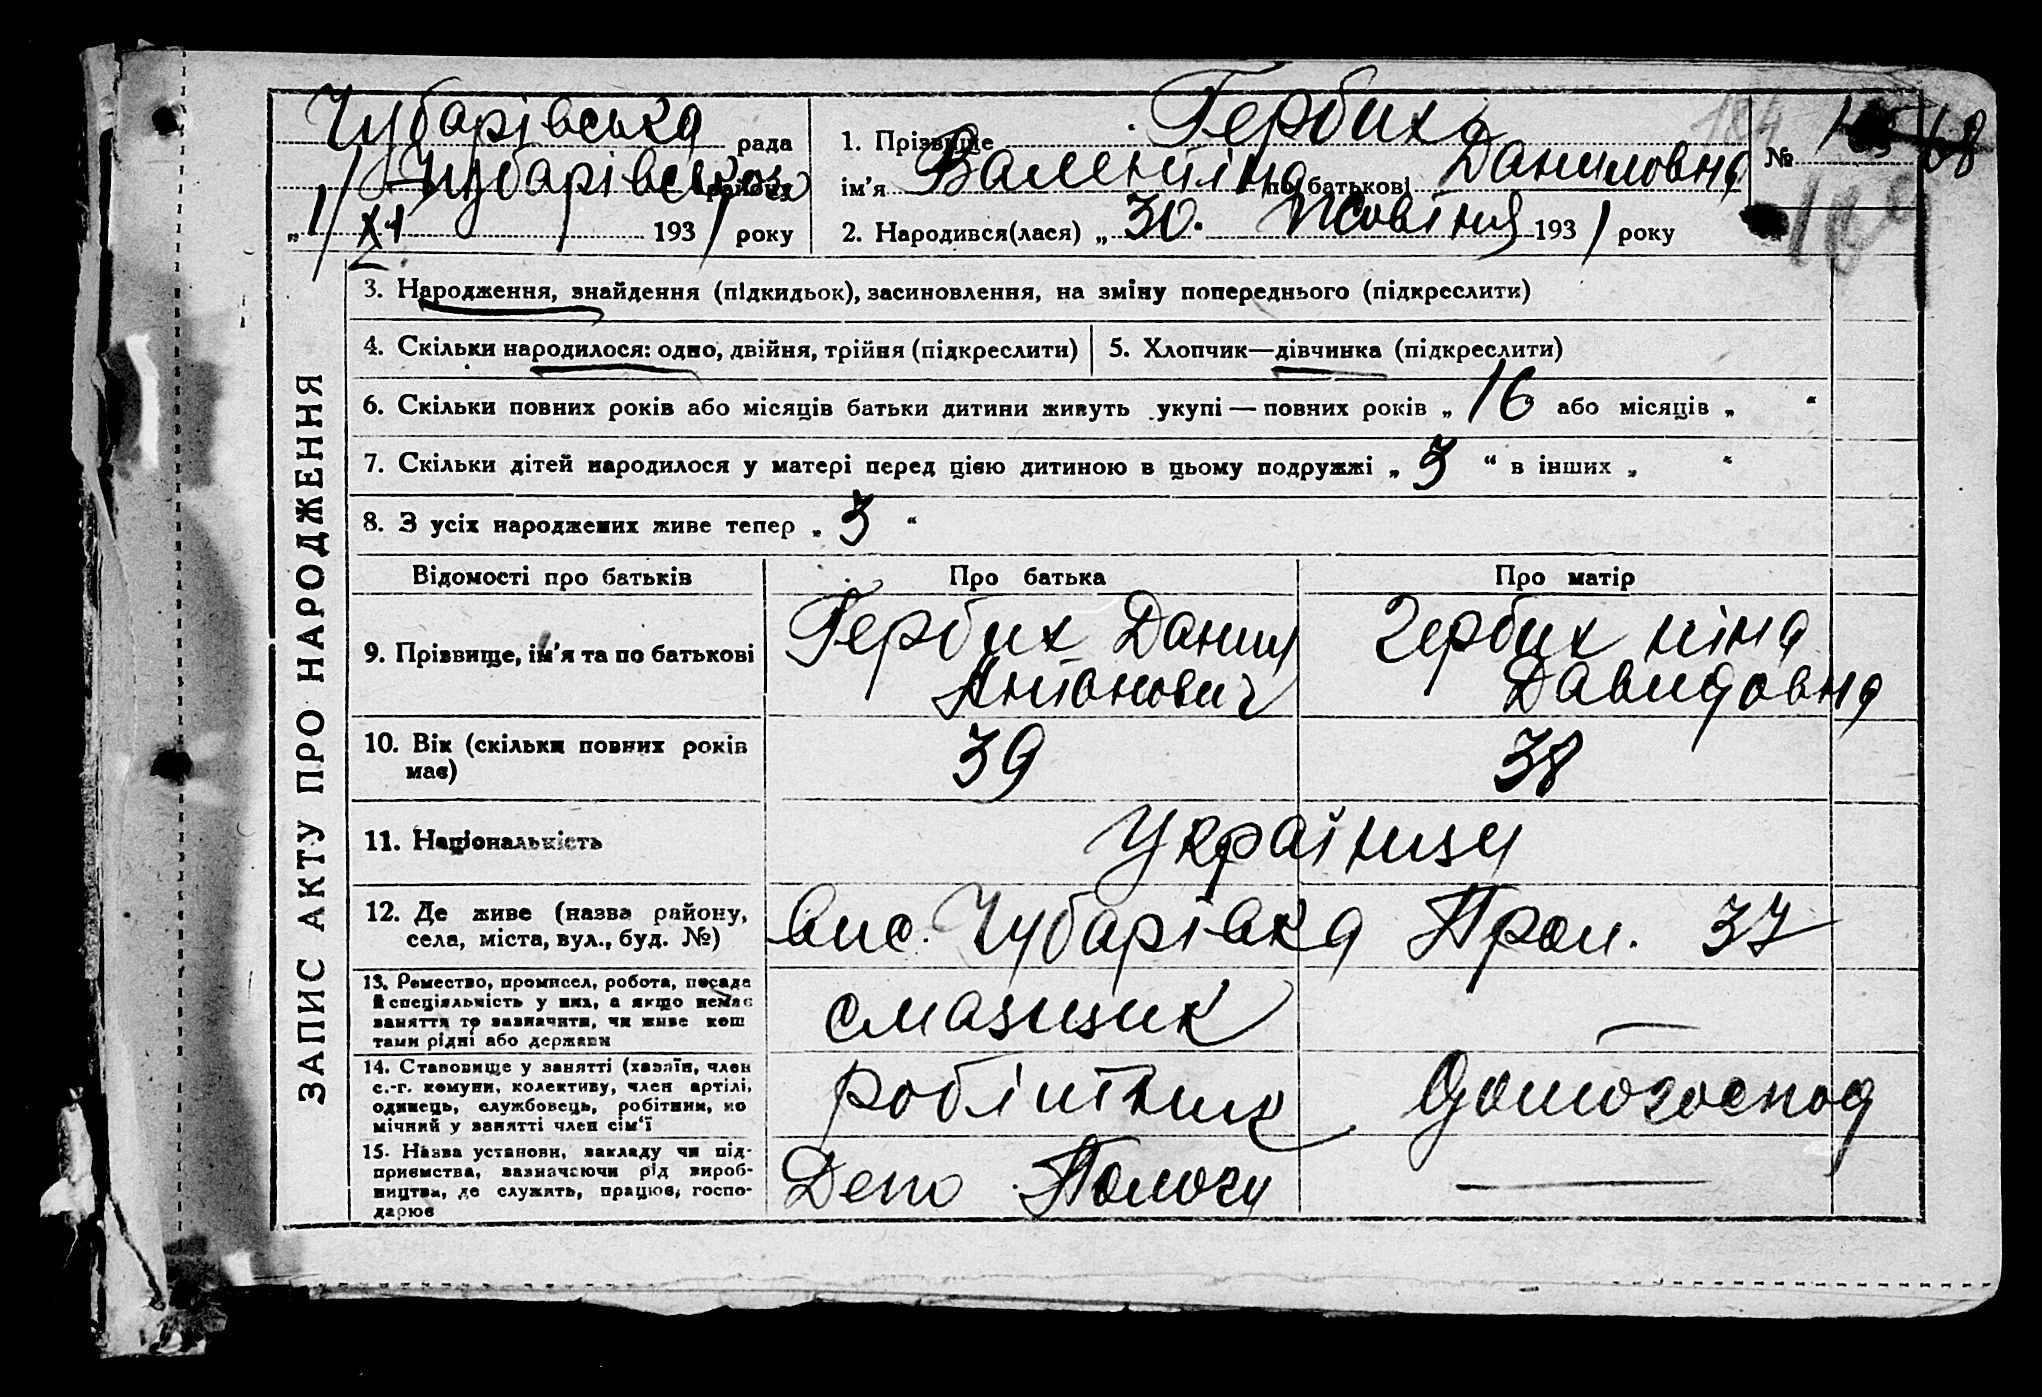 Чубарівська рада
Чубарівськ району
"1/XI 1931 року
1. Прізвище Гербих
ім'я Валентіна по батькові Даниловна
2. Народився(лася) „30. Жовтня 1931 року
№
184
68
ЗАПИС АКТУ ПРО НАРОДЖЕННЯ
3. Народження, знайдення (підкидьок), засиновлення, на зміну попереднього (підкреслити)
4. Скільки народилося: одно, двійня, трійня (підкреслити)
5. Хлопчик—дівчинка (підкреслити)
6. Скільки повних років або місяців батьки дитини живуть укупі — повних років „ 16 або місяців „ “
7. Скільки дітей народилося у матері перед цією дитиною в цьому подружжі „ 3 “ в інших „ “
8. З усіх народжених живе тепер „ 3 “
Відомості про батьків
Про батька
Про матір
9. Прізвище, ім'я та по батькові
Гербих Данил
Антонович
Гербих Ніна
Давидовна
10. Вік (скільки повних років
має)
39
38
11. Національність
Українци
12. Де живе (назва району,
села, міста, вул., буд. №)
вис. Чубарівка Прол. 37
13. Ремество, промисел, робота, посада
й спеціяльність у них, а якщо немає
заняття то зазначити, чи живе кош
тами рідні або держави
смазщик
—
14. Становище у занятті (хазяїн, член
с.-г. комуни, колективу, член артілі,
одинець, службовець, робітник, по
мічний у занятті член сім'ї
робітник
домогоспод
15. Назва установи, закладу чи під-
приємства, зазначаючи рід вироб-
ництва, де служить, працює, госпо-
дарює
Депо Пологи
—